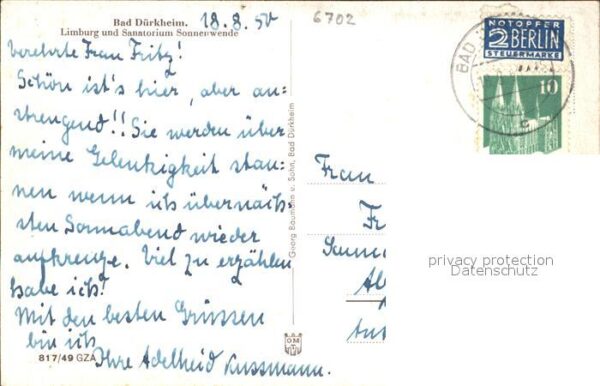 Bad Dürkheim.
Limburg und Sanatorium Sonnenwende
18.8.50
6702
Verehrte Frau Fritz!
Schön ist's hier, aber an-
strengend!! Sie werden über
meine Gelenkigkeit stau-
nen wenn ich übernäch-
sten Sonnabend wieder
aufkreuze. Viel zu erzählen
habe ich!
Mit den besten Grüssen
bin ich
Ihre Adelheid Kussmann.
817/49 GZA
Georg Baumann u. Sohn, Bad Dürkheim
OM
NOTOPFER
2 BERLIN
STEUERMARKE
10
BAD
c
Frau
Fr
privacy protection
Datenschutz